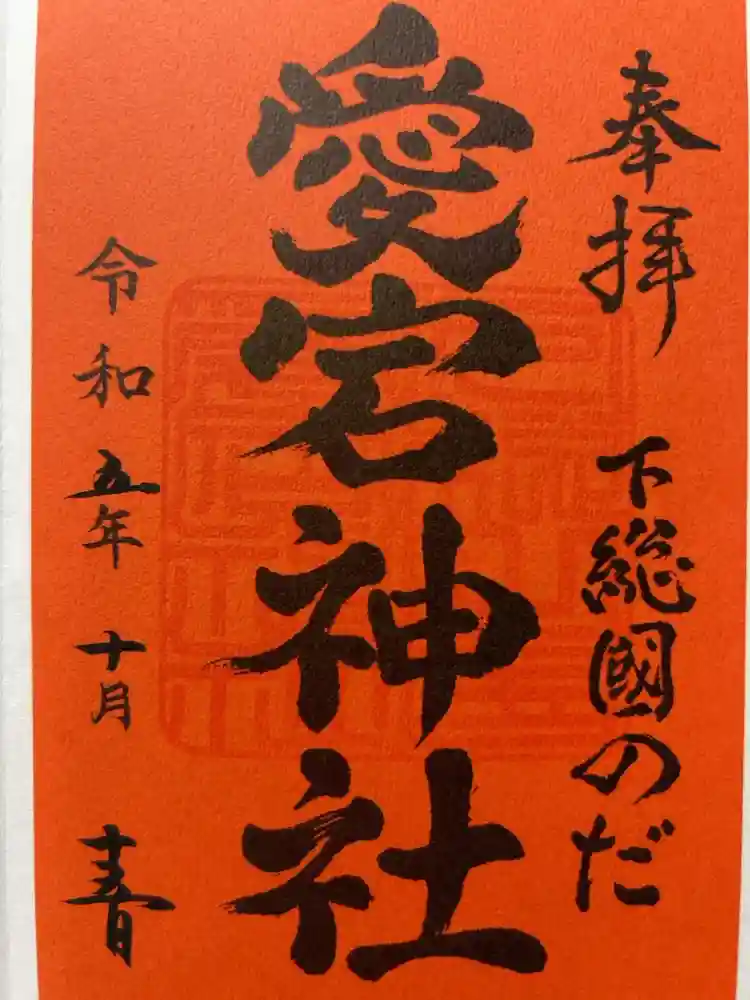 奉拝 下総國のだ
愛宕神社
令和五年 十月